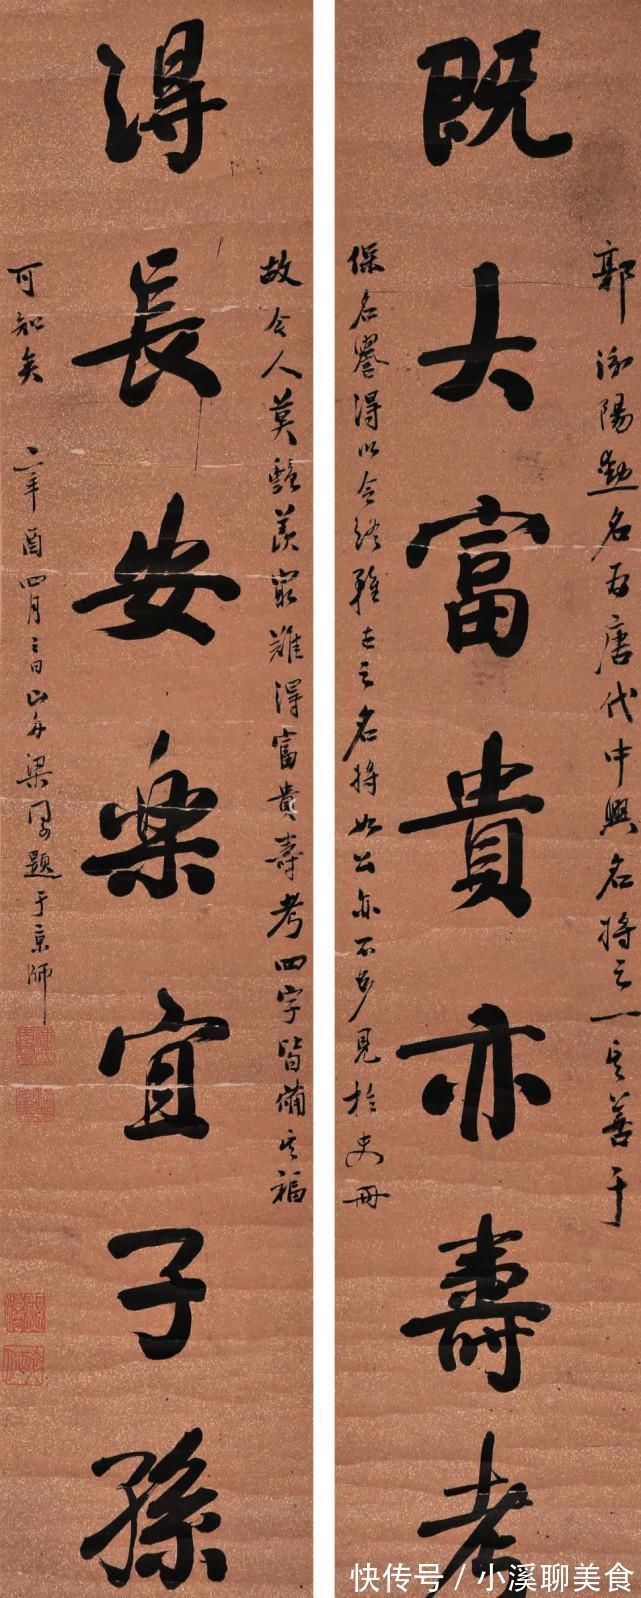 既大富貴亦壽考
郭汾陽勳名為唐代中興名將之一其善于
保名譽得以令終雖古之名將如公亦不多見於史冊
得長安樂宜子孫
故令人莫豔羨最難得富貴壽考四字皆備其福
可知矣 辛酉四月 山舟梁同書題于京師
快传号 / 小溪聊美食